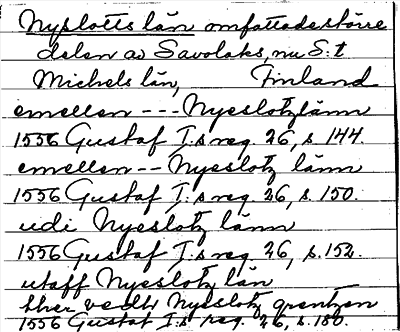 Nyslotts län omfattade större
delen av Savolaks, nu S:t
Michels län, Finland
emellen --- Nyeslotz länn
1556 Gustaf I.s reg. 26, s. 144.
emellen -- Nyeslotz länn
1556 Gustaf I.s reg. 26, s. 150.
udi Nyeslotz länn
1556 Gustaf I.s reg. 26, s. 152.
utaff Nyeslotz län
ther vedh Nyeslotz grentzen
1556 Gustaf I.s reg. 26, s. 180.